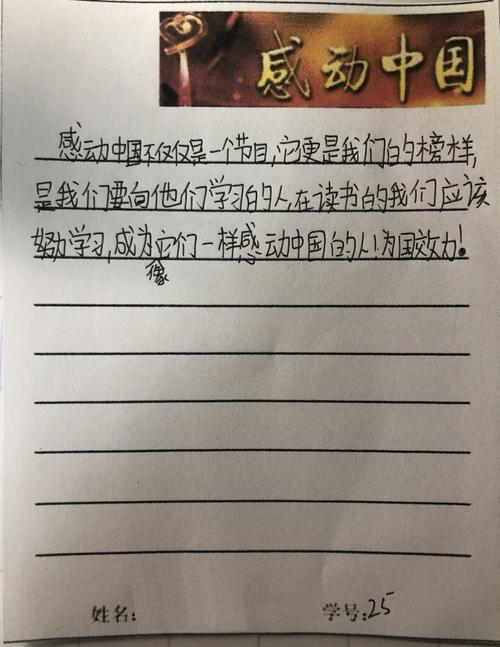 感动中国
感动中国不仅仅是一个节目,它更是我们的榜样,
是我们要向他们学习的人,在读书的我们应该
努力学习,成为像它们一样,感动中国的人!为国效力!
姓名:
学号:25